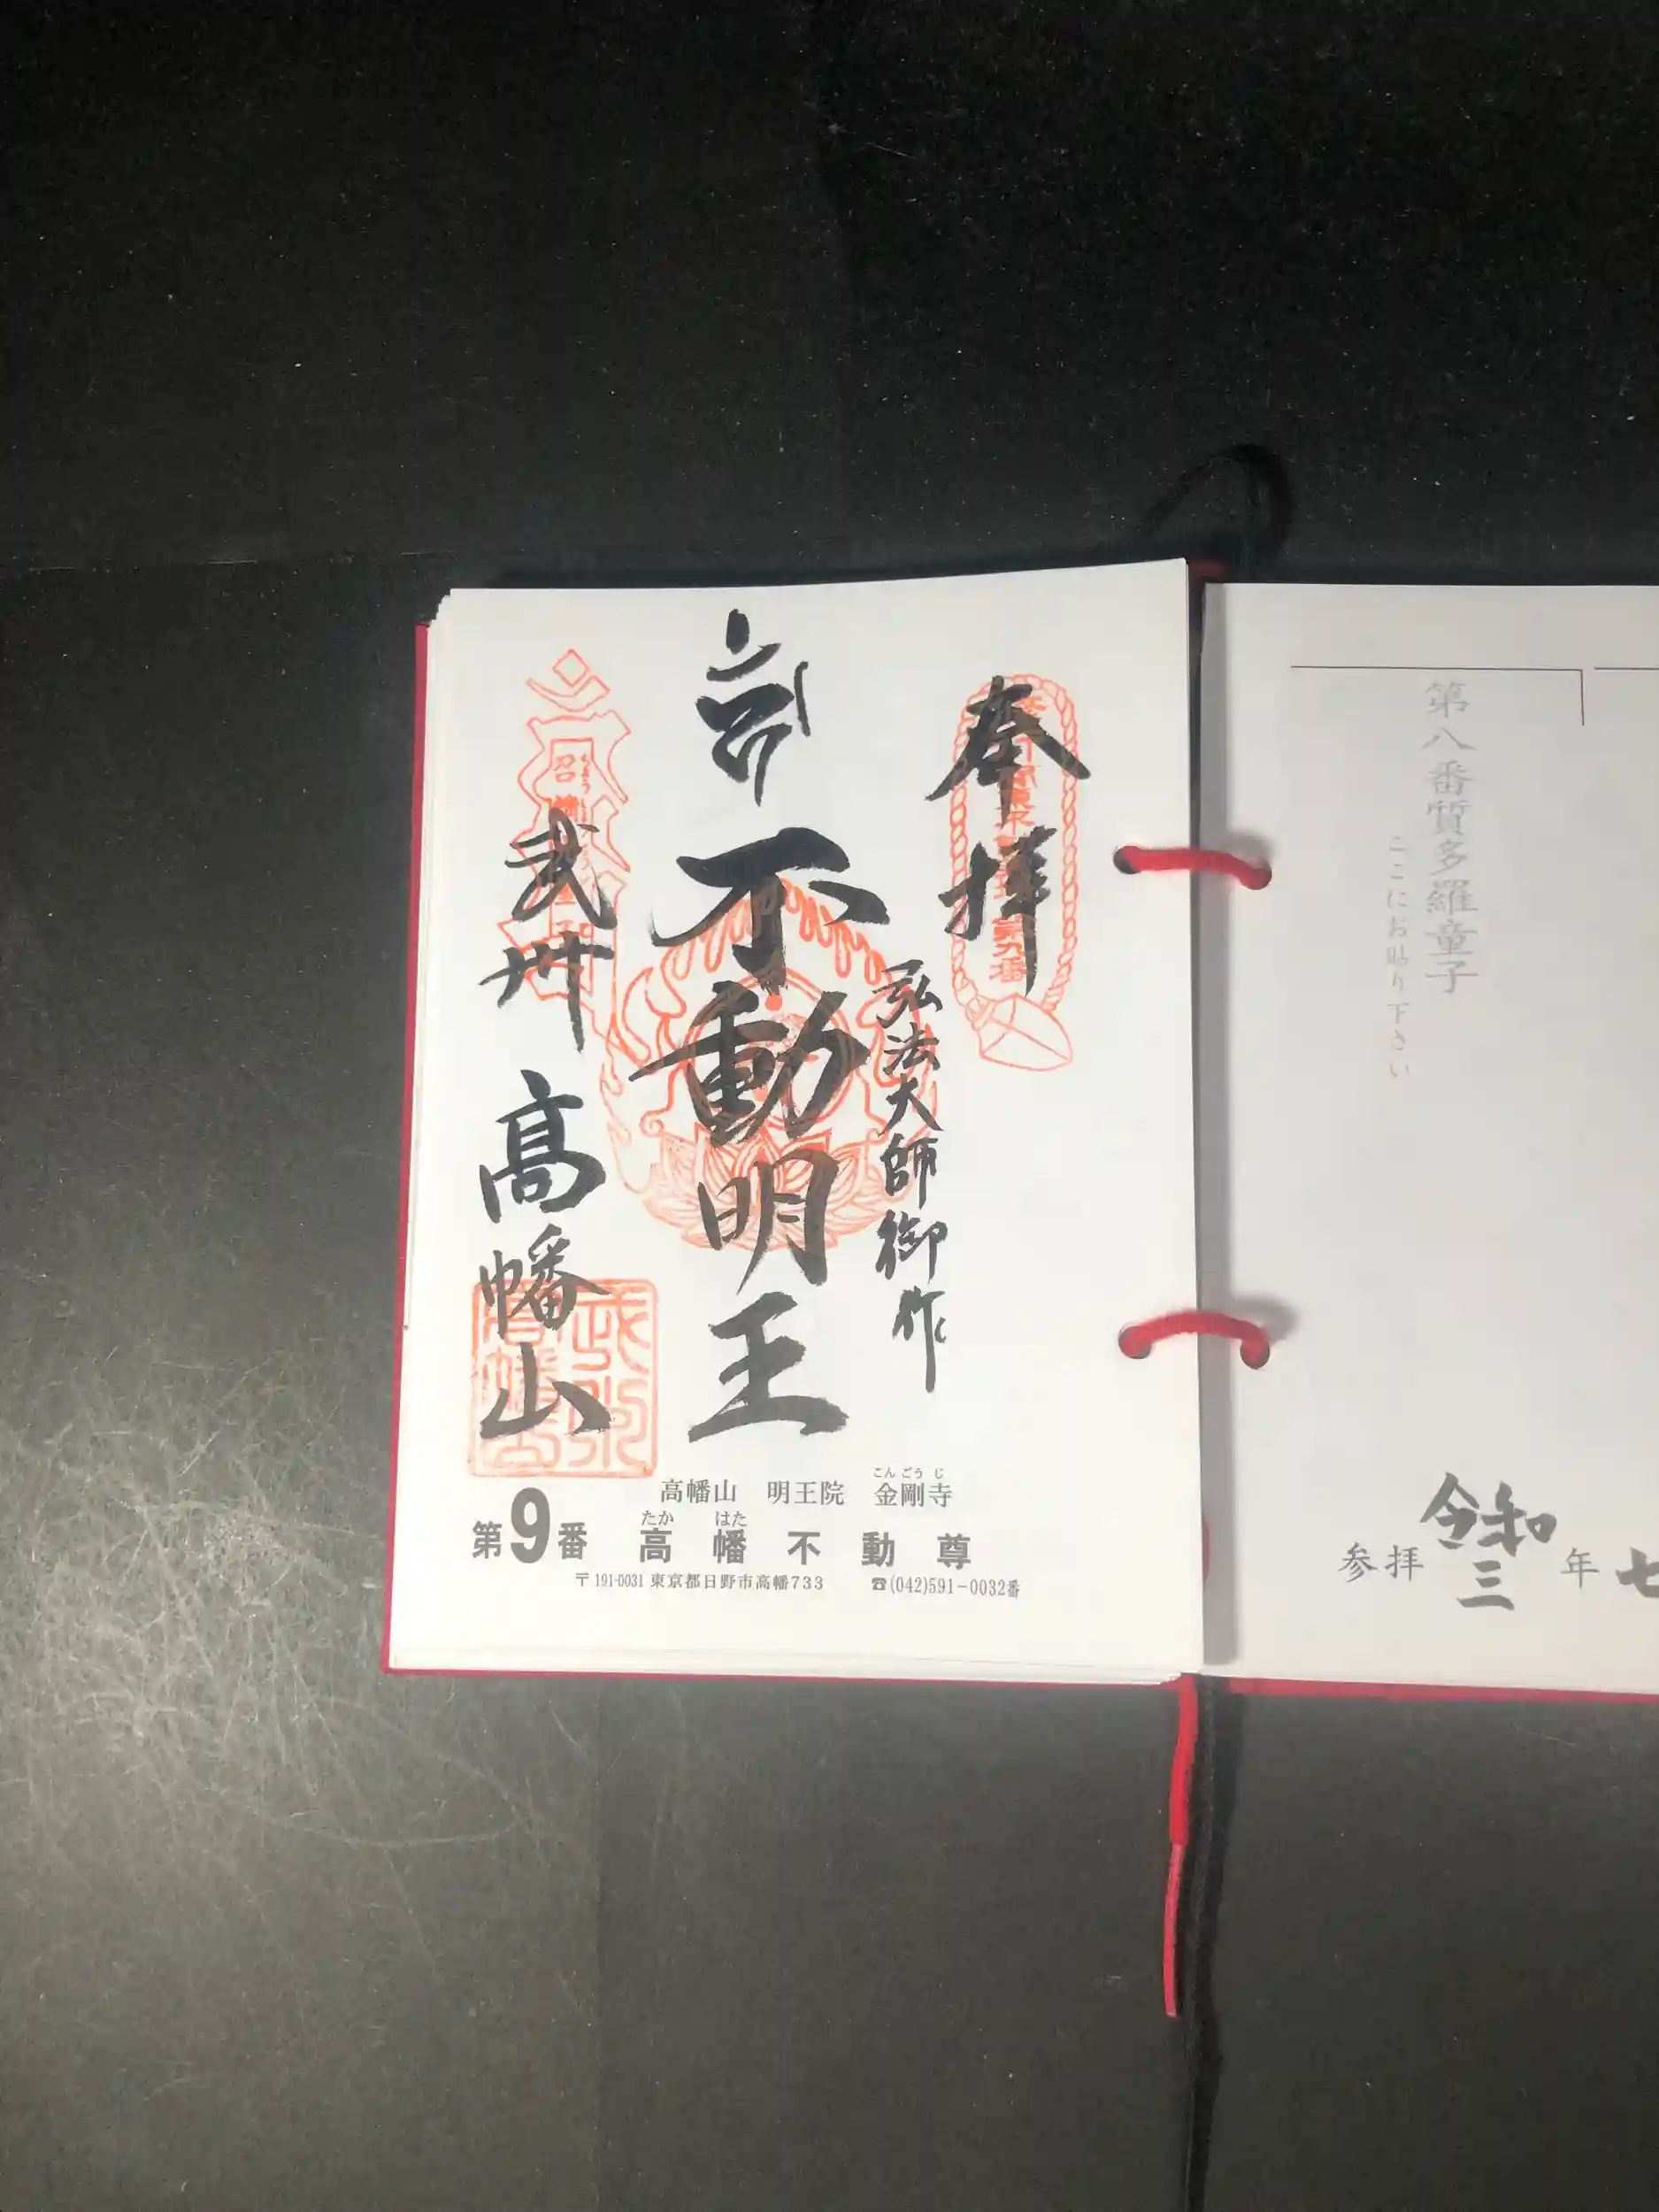 奉拝
弘法大師御作
不動明王
武州 高幡山
こんごうじ
高幡山 明王院 金剛寺
たか はた
第9番 高幡不動尊
〒191-0031 東京都日野市高幡733 ☎(042)591-0032番
第八番質多羅童子
ここにお貼り下さい
参拝 令和三年七